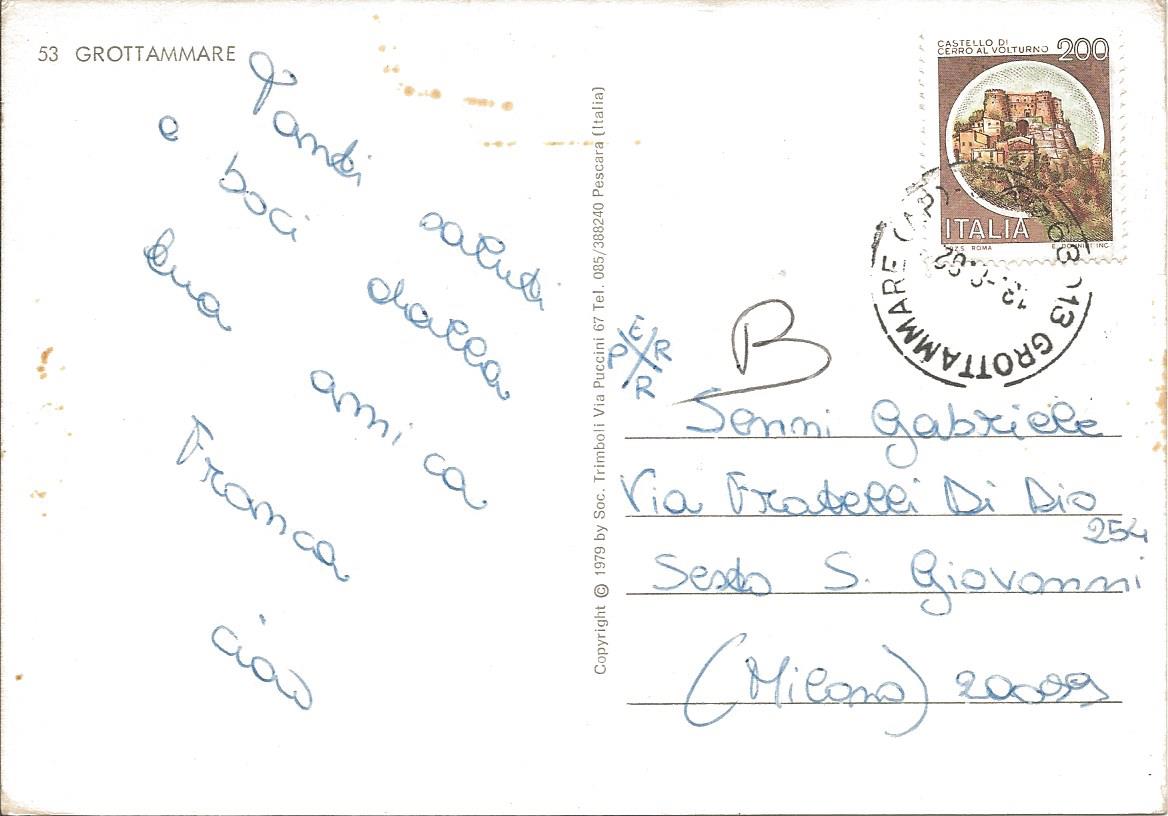 53 GROTTAMMARE
Tanti saluti
e baci dalla
tua amica
Franca
ciao
Copyright © 1979 by Soc. Trimboli Via Puccini 67 Tel. 085/388240 Pescara (Italia)
CASTELLO DI
CERRO AL VOLTURNO 200
ITALIA
I.P.Z.S. ROMA E. DONNINI INC.
63013 GROTTAMMARE (AP)
B
PER
R
Senni Gabriele
Via Fratelli Di Dio
254
Sesto S. Giovanni
(Milano) 20099